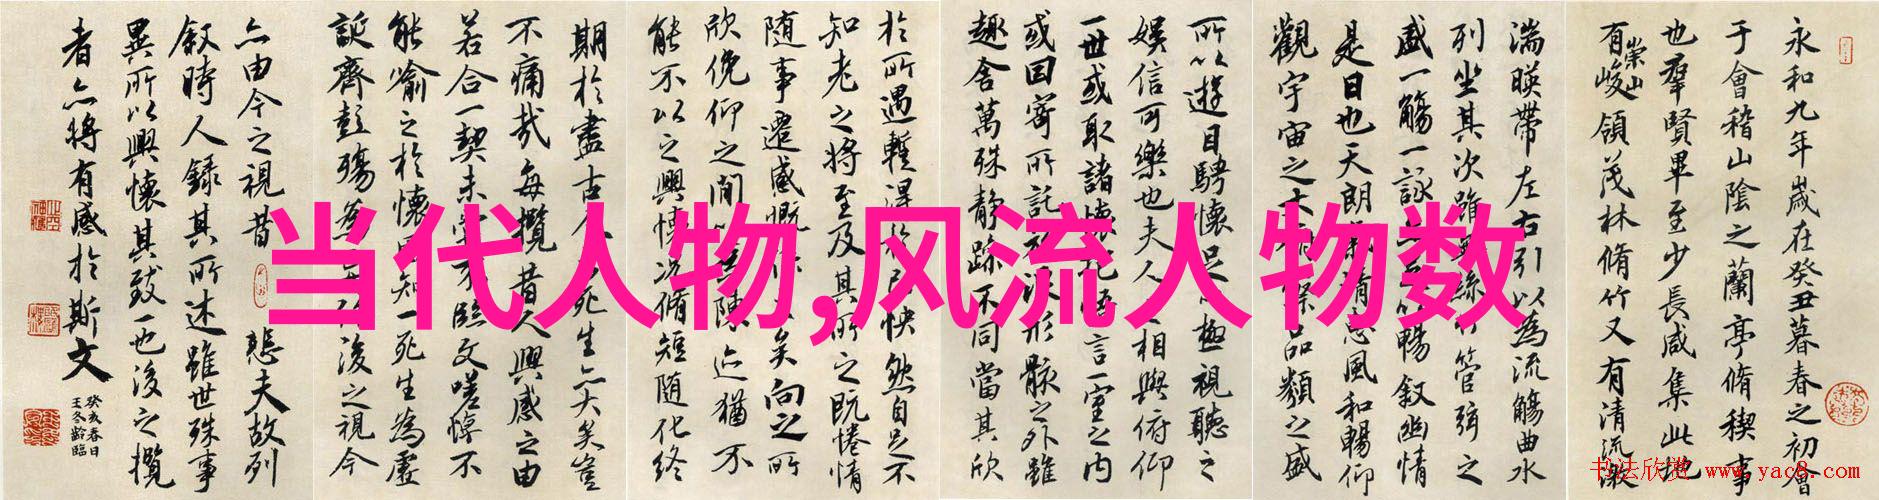 永和九年歲在癸丑暮春之初會
于會稽山陰之蘭亭脩稧事
也羣賢畢至少長咸集此地
有崇山峻領茂林脩竹又有清流激
湍暎帶左右引以為流觴曲水
列坐其次雖無絲竹管弦之
盛一觴一詠足以暢叙幽情
是日也天朗清惠風和暢仰
觀宇宙之大察品類之盛
所以遊目騁懷足極視聽之
娛信可樂也夫人相與俯仰
一世或取諸懷悟言一室之內
或因寄所託浪形骸之外雖
趣舍萬殊静躁不同當其欣
於所遇暫得於己怏然自足不
知老之將至及其所之既惓情
随事遷感慨矣向之所
欣俛仰之閒陳迹猶不
能不以之興懷况脩短随化終
期於盡古人死生亦大矣豈
不痛哉每攬昔人興感之由
若合一契未嘗不臨文嗟悼不
能喻之於懷知一死生為虛
誕齊彭殤為後之視今
亦由今之視昔 悲夫故列
叙時人錄其所述雖世殊事
異所以興懷其致一也後之攬
者亦將有感於斯文
癸亥春日
王冬齡臨
当代人物,风流人物数
书法欣赏 www.yac8.com